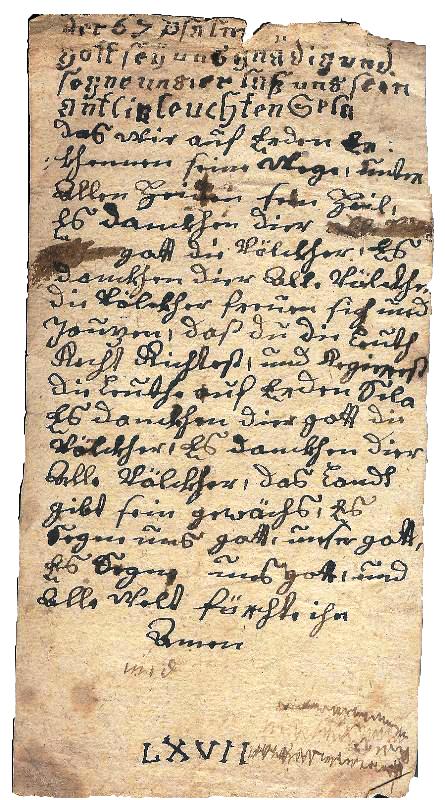 der 67 Psalm
Gott sey uns gnädig und
segne uns, er laß uns sein
antliz leuchten Sela
das wir auf Erden Er,
khennen seine Wege, unter
allen Heiden sein Heil,
Es danckhen dier
gott die Völckher, Es
danckhen dier alle Völckher
die Völckher freuen sich und
Jauzen, daß du die Leuth
Recht Richtest, und Regierest
die Leuthe auf Erden Sela
Es danckhen dier gott die
Völckher, Es danckhen dier
alle Völckher, das Landt
gibt sein gewächs, Es
Segne uns gott, unser gott,
Es Segne uns gott, und
alle Welt förchte ihn
Amen
und
LXVII